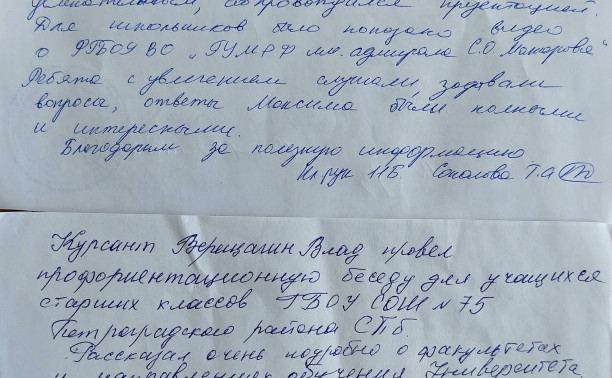 увлекательным, сопровождался презентацией.
Для школьников было показано видео
о ФГБОУ ВО „ГУМРФ им. адмирала С.О. Макарова"
Ребята с увлечением слушали, задавали
вопросы, ответы Максима были полными
и интересными.
Благодарим за полезную информацию
Кл рук 11Б Соколова Т.А
Курсант Верещагин Влад провел
профориентационную беседу для учащихся
старших классов ГБОУ СОШ №75
Петроградского района СПб
Рассказал очень подробно о факультетах
и направлениях обучения Университета